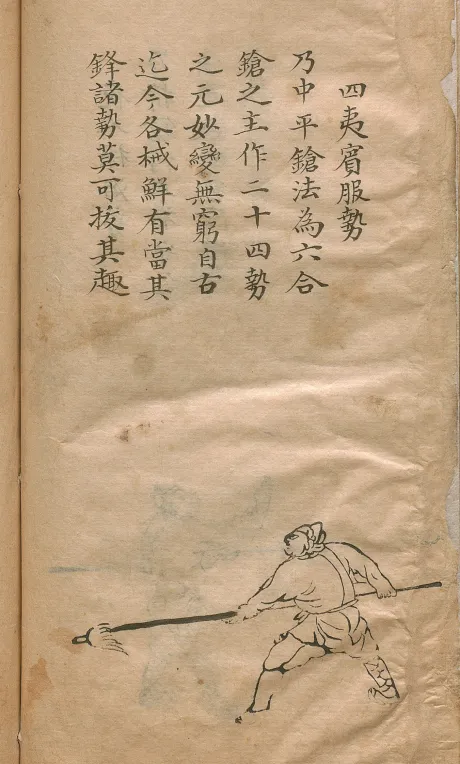 四夷賓服勢
乃中平鎗法為六合
鎗之主作二十四勢
之元妙變無窮自古
迄今各械鮮有當其
鋒諸勢莫可挍其趣